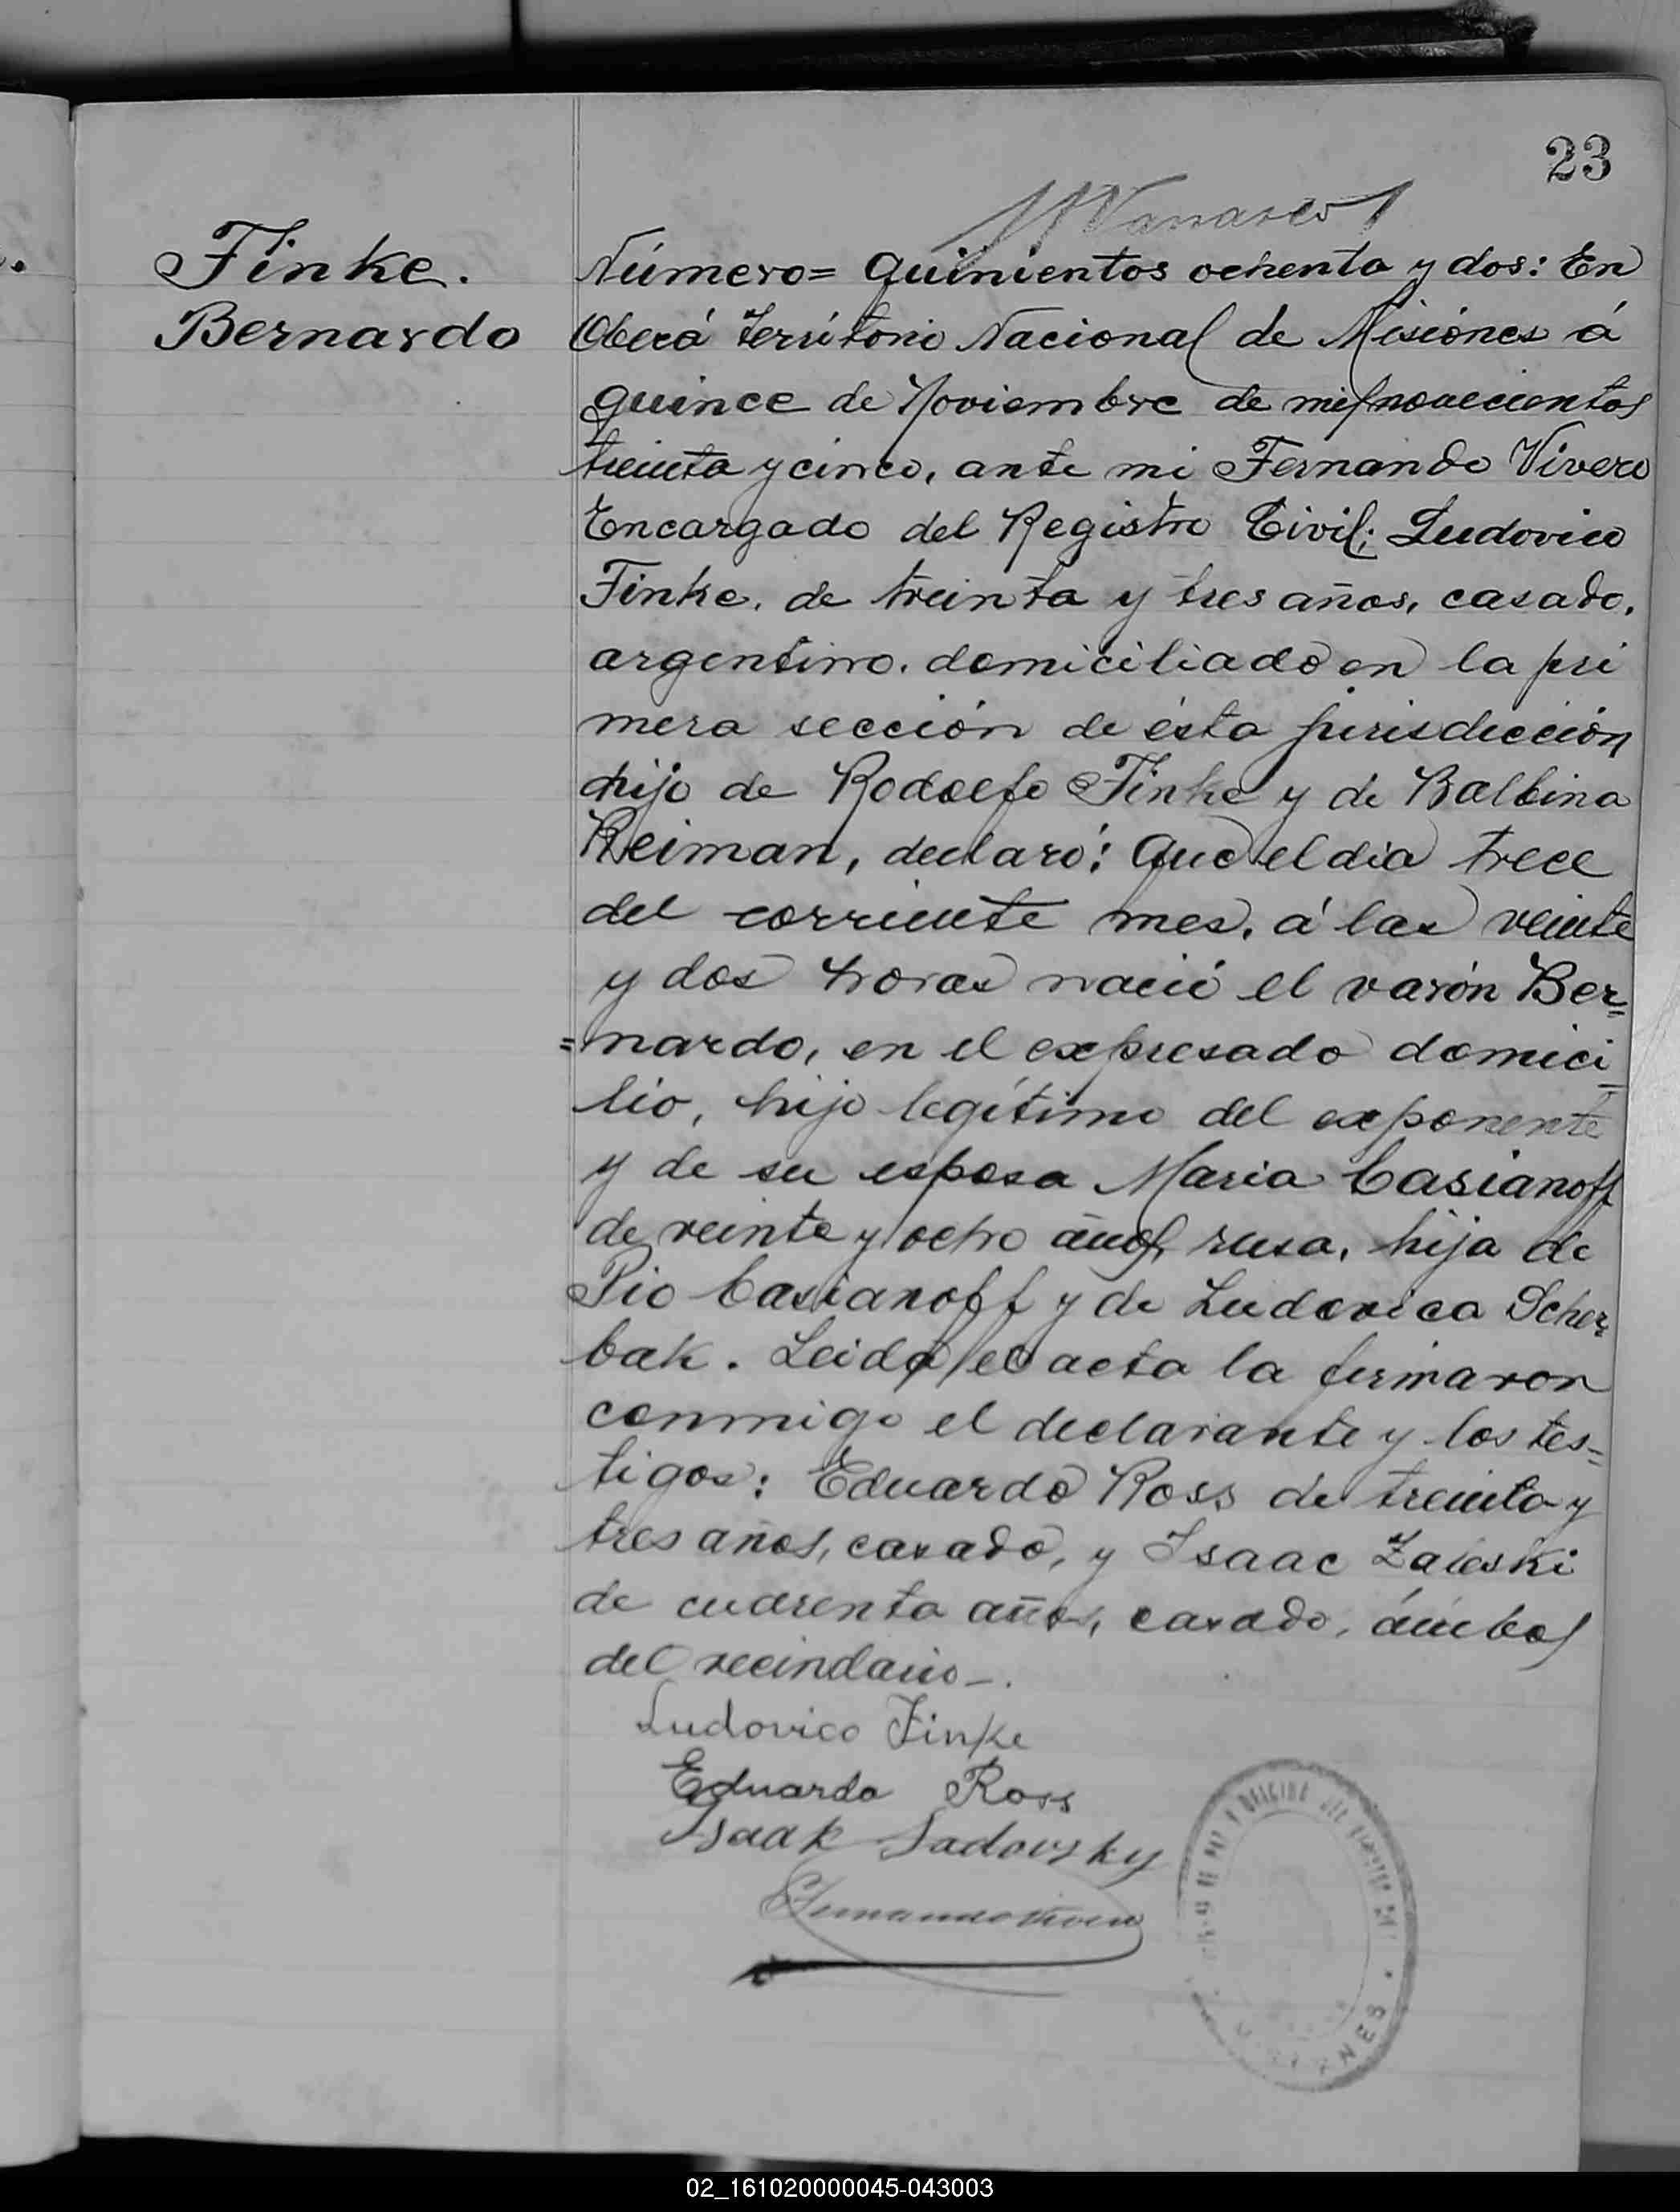 23
Finke.
Bernardo
Número= Quinientos ochenta y dos: En
Oberá Territorio Nacional de Misiones á
quince de Noviembre de mil novecientos
treinta y cinco, ante mi Fernando Vivero
Encargado del Registro Civil; Ludovico
Finke, de treinta y tres años, casado,
argentino, domiciliado en la pri
mera sección de ésta jurisdicción
hijo de Rodolfo Finke y de Balbina
Reiman, declaró: Que el dia trece
del corriente mes, á las veinte
y dos horas nació el varón Ber=
=nardo, en el expresado domici=
lio, hijo legítimo del exponente
y de su esposa Maria Casianoff
de veinte y ocho años, rusa, hija de
Pio Casianoff y de Ludovica Scher=
bak. Leida el acta la firmaron
conmigo el declarante y los tes=
tigos: Eduardo Ross de treinta y
tres años, casado, y Isaac Zaleski
de cuarenta años, casado, ámbos
del vecindario-.
Ludovico Finke
Eduardo Ross
Isaak Sadovsky
Fernando Vivero
MISIONES
02_161020000045-043003